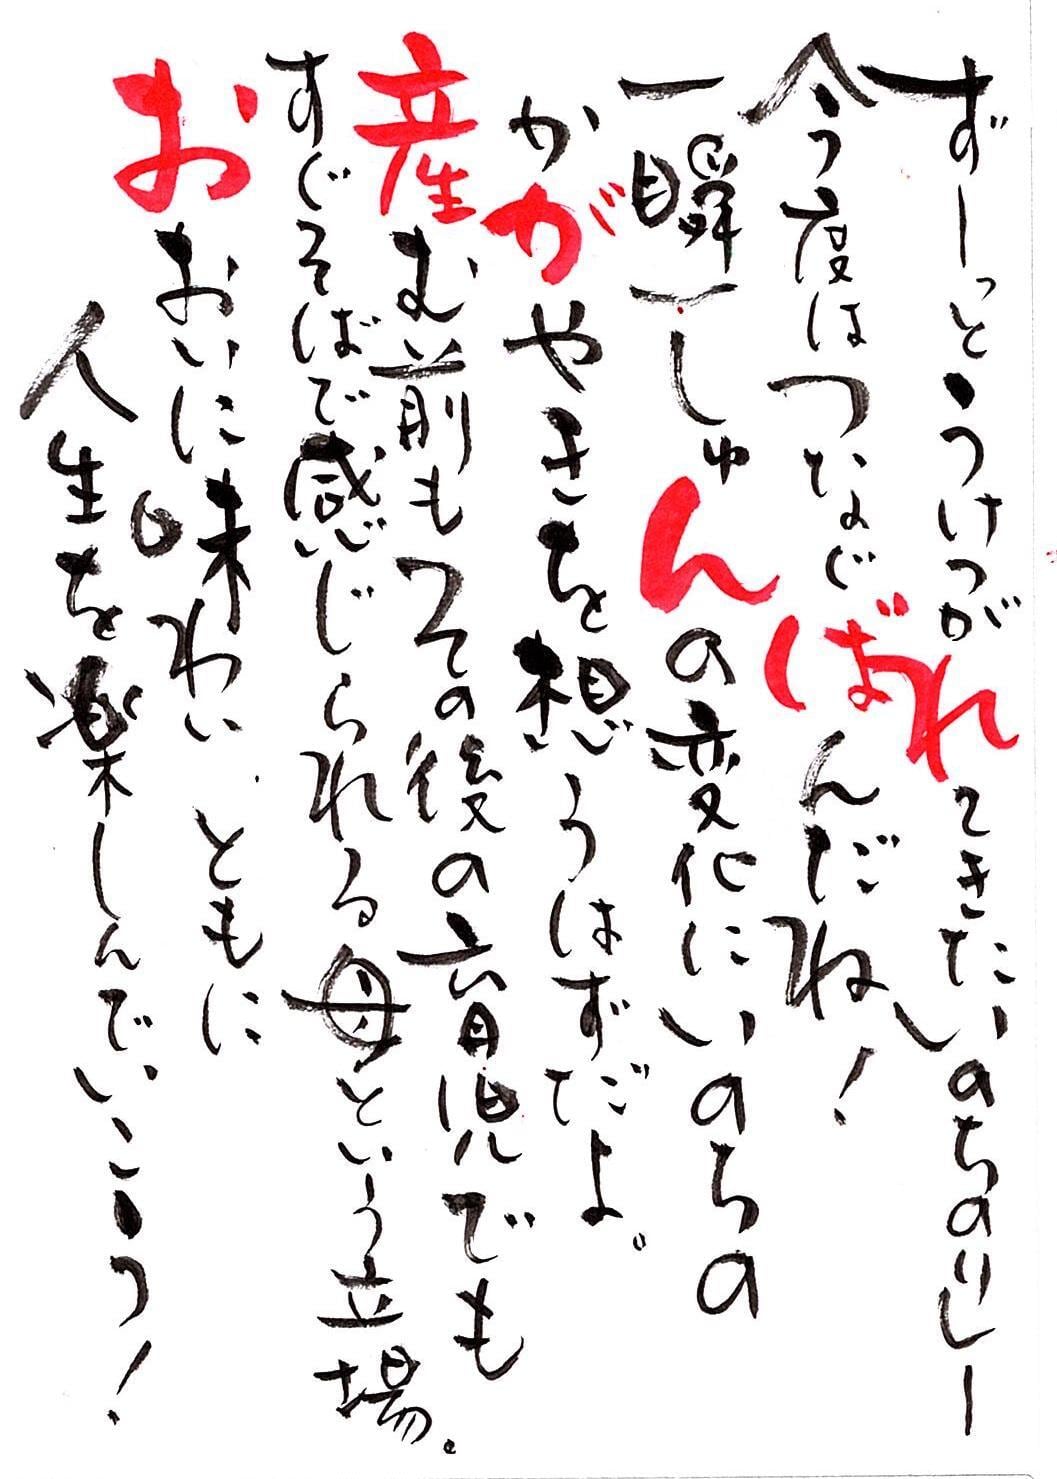 ずーっとうけつがれてきたいのちのリレー
今度はつなぐばんだね！
一瞬一しゅんの変化にいのちの
かがやきを想うはずだよ。
産む前もその後の育児でも
すぐそばで感じられる母という立場。
おおいに味わい ともに
人生を楽しんでいこう！